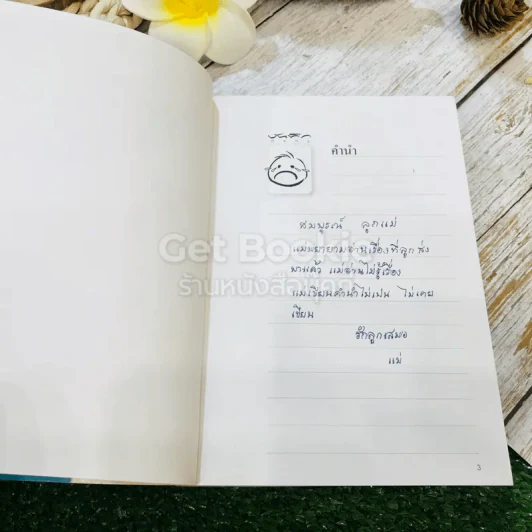 คำนำ
สมบูรณ์ ลูกแม่
แม่พยายามอ่านเรื่องที่ลูกส่ง
มาแล้ว แม่อ่านไม่รู้เรื่อง
แม่เขียนคำนำไม่เป็น ไม่เคย
เขียน
รักลูกเสมอ
แม่
Get Bookie
ร้านหนังสือ
3